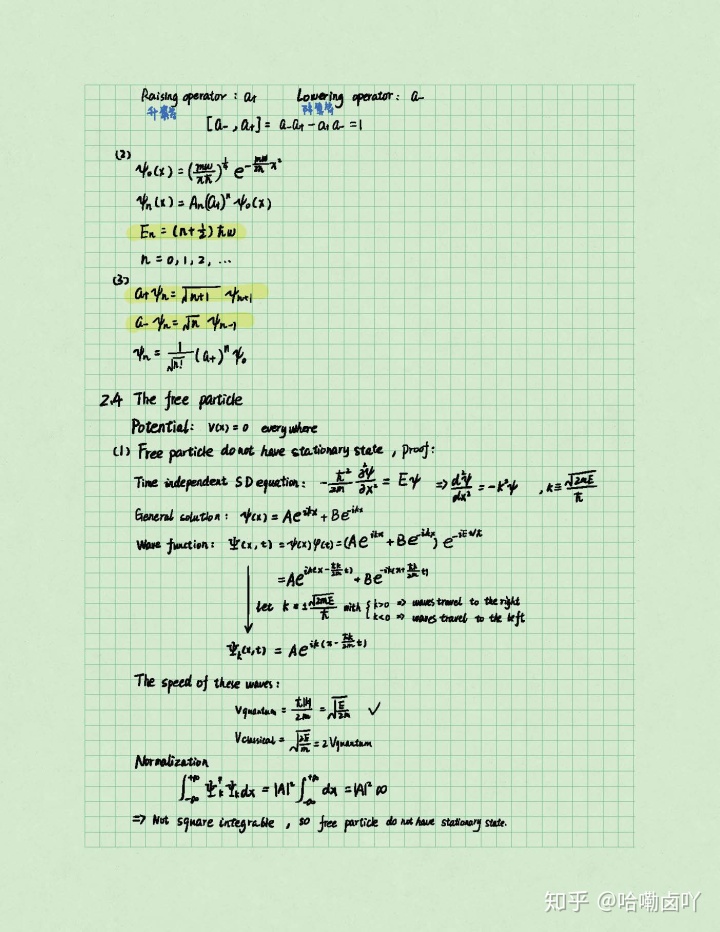 Raising operator : a₊ Lowering operator : a₋
升算符 降算符
[a₋, a₊] = a₋a₊ − a₊a₋ = 1
(2)
ψ₀(x) = (mω/πħ)^(1/4) e^(−(mω/2ħ)x²)
ψₙ(x) = Aₙ(a₊)ⁿ ψ₀(x)
Eₙ = (n+½)ħω
n = 0, 1, 2, ...
(3)
a₊ψₙ = √(n+1) ψₙ₊₁
a₋ψₙ = √n ψₙ₋₁
ψₙ = 1/√(n!) (a₊)ⁿ ψ₀
2.4 The free particle
Potential: V(x) = 0 everywhere
(1) Free particle do not have stationary state , Proof:
Time independent SD equation: −ħ²/2m ∂²ψ/∂x² = Eψ ⇒ d²ψ/dx² = −k²ψ , k ≡ √(2mE)/ħ
General solution: ψ(x) = Ae^(ikx) + Be^(−ikx)
Wave function: Ψ(x, t) = ψ(x)φ(t) = (Ae^(ikx) + Be^(−ikx)) e^(−iEt/ħ)
= Ae^(ik(x − (ħk/2m)t)) + Be^(−ik(x + (ħk/2m)t))
let k = ±√(2mE)/ħ with { k>0 ⇒ waves travel to the right
k<0 ⇒ waves travel to the left
Ψₖ(x,t) = Ae^(ik(x − (ħk/2m)t))
The speed of these waves :
Vquantum = ħ|k|/2m = √(E/2m) ✓
Vclassical = √(2E/m) = 2Vquantum
Normalization
∫₋∞^+∞ Ψₖ*Ψₖdx = |A|² ∫₋∞^+∞ dx = |A|²∞
⇒ Not square integrable , so free particle do not have stationary state.
知乎 @哈嘞卤吖